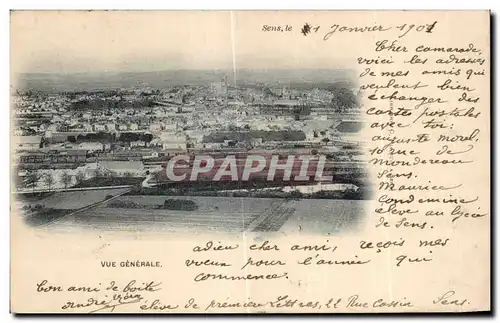 Sens, le 1 Janvier 1901
Cher camarade,
voici les adresses
de mes amis qui
veulent bien
échanger des
cartes postales
avec toi:
auguste Morel
10 rue de
Montereau
Sens
Maurice
Condemine
élève au lycée
de Sens.
CARTES POSTALES
CPAPHIL
VUE GÉNÉRALE.
adieu cher ami, reçois mes
vœux pour l'année qui
commence.
ton ami de boîte
andré
élève de première Lettres, 22 Rue Cassin Sens.